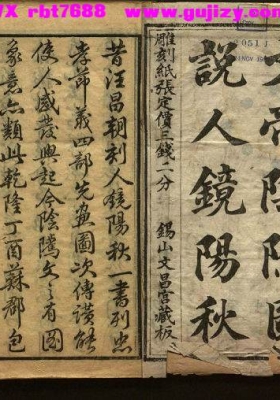 X rbt7688 www.gujizy.com
051
文帝陰隲圖
說人鏡陽秋
雕刻紙張定價三錢二分 錫山文昌宮藏板
昔汪昌朝刻人鏡陽秋一書列忠
孝節義四部先畫圖次傳讚能
使人感發興起今陰隲文之有圖
象意亦類此乾隆丁酉蘇郡包